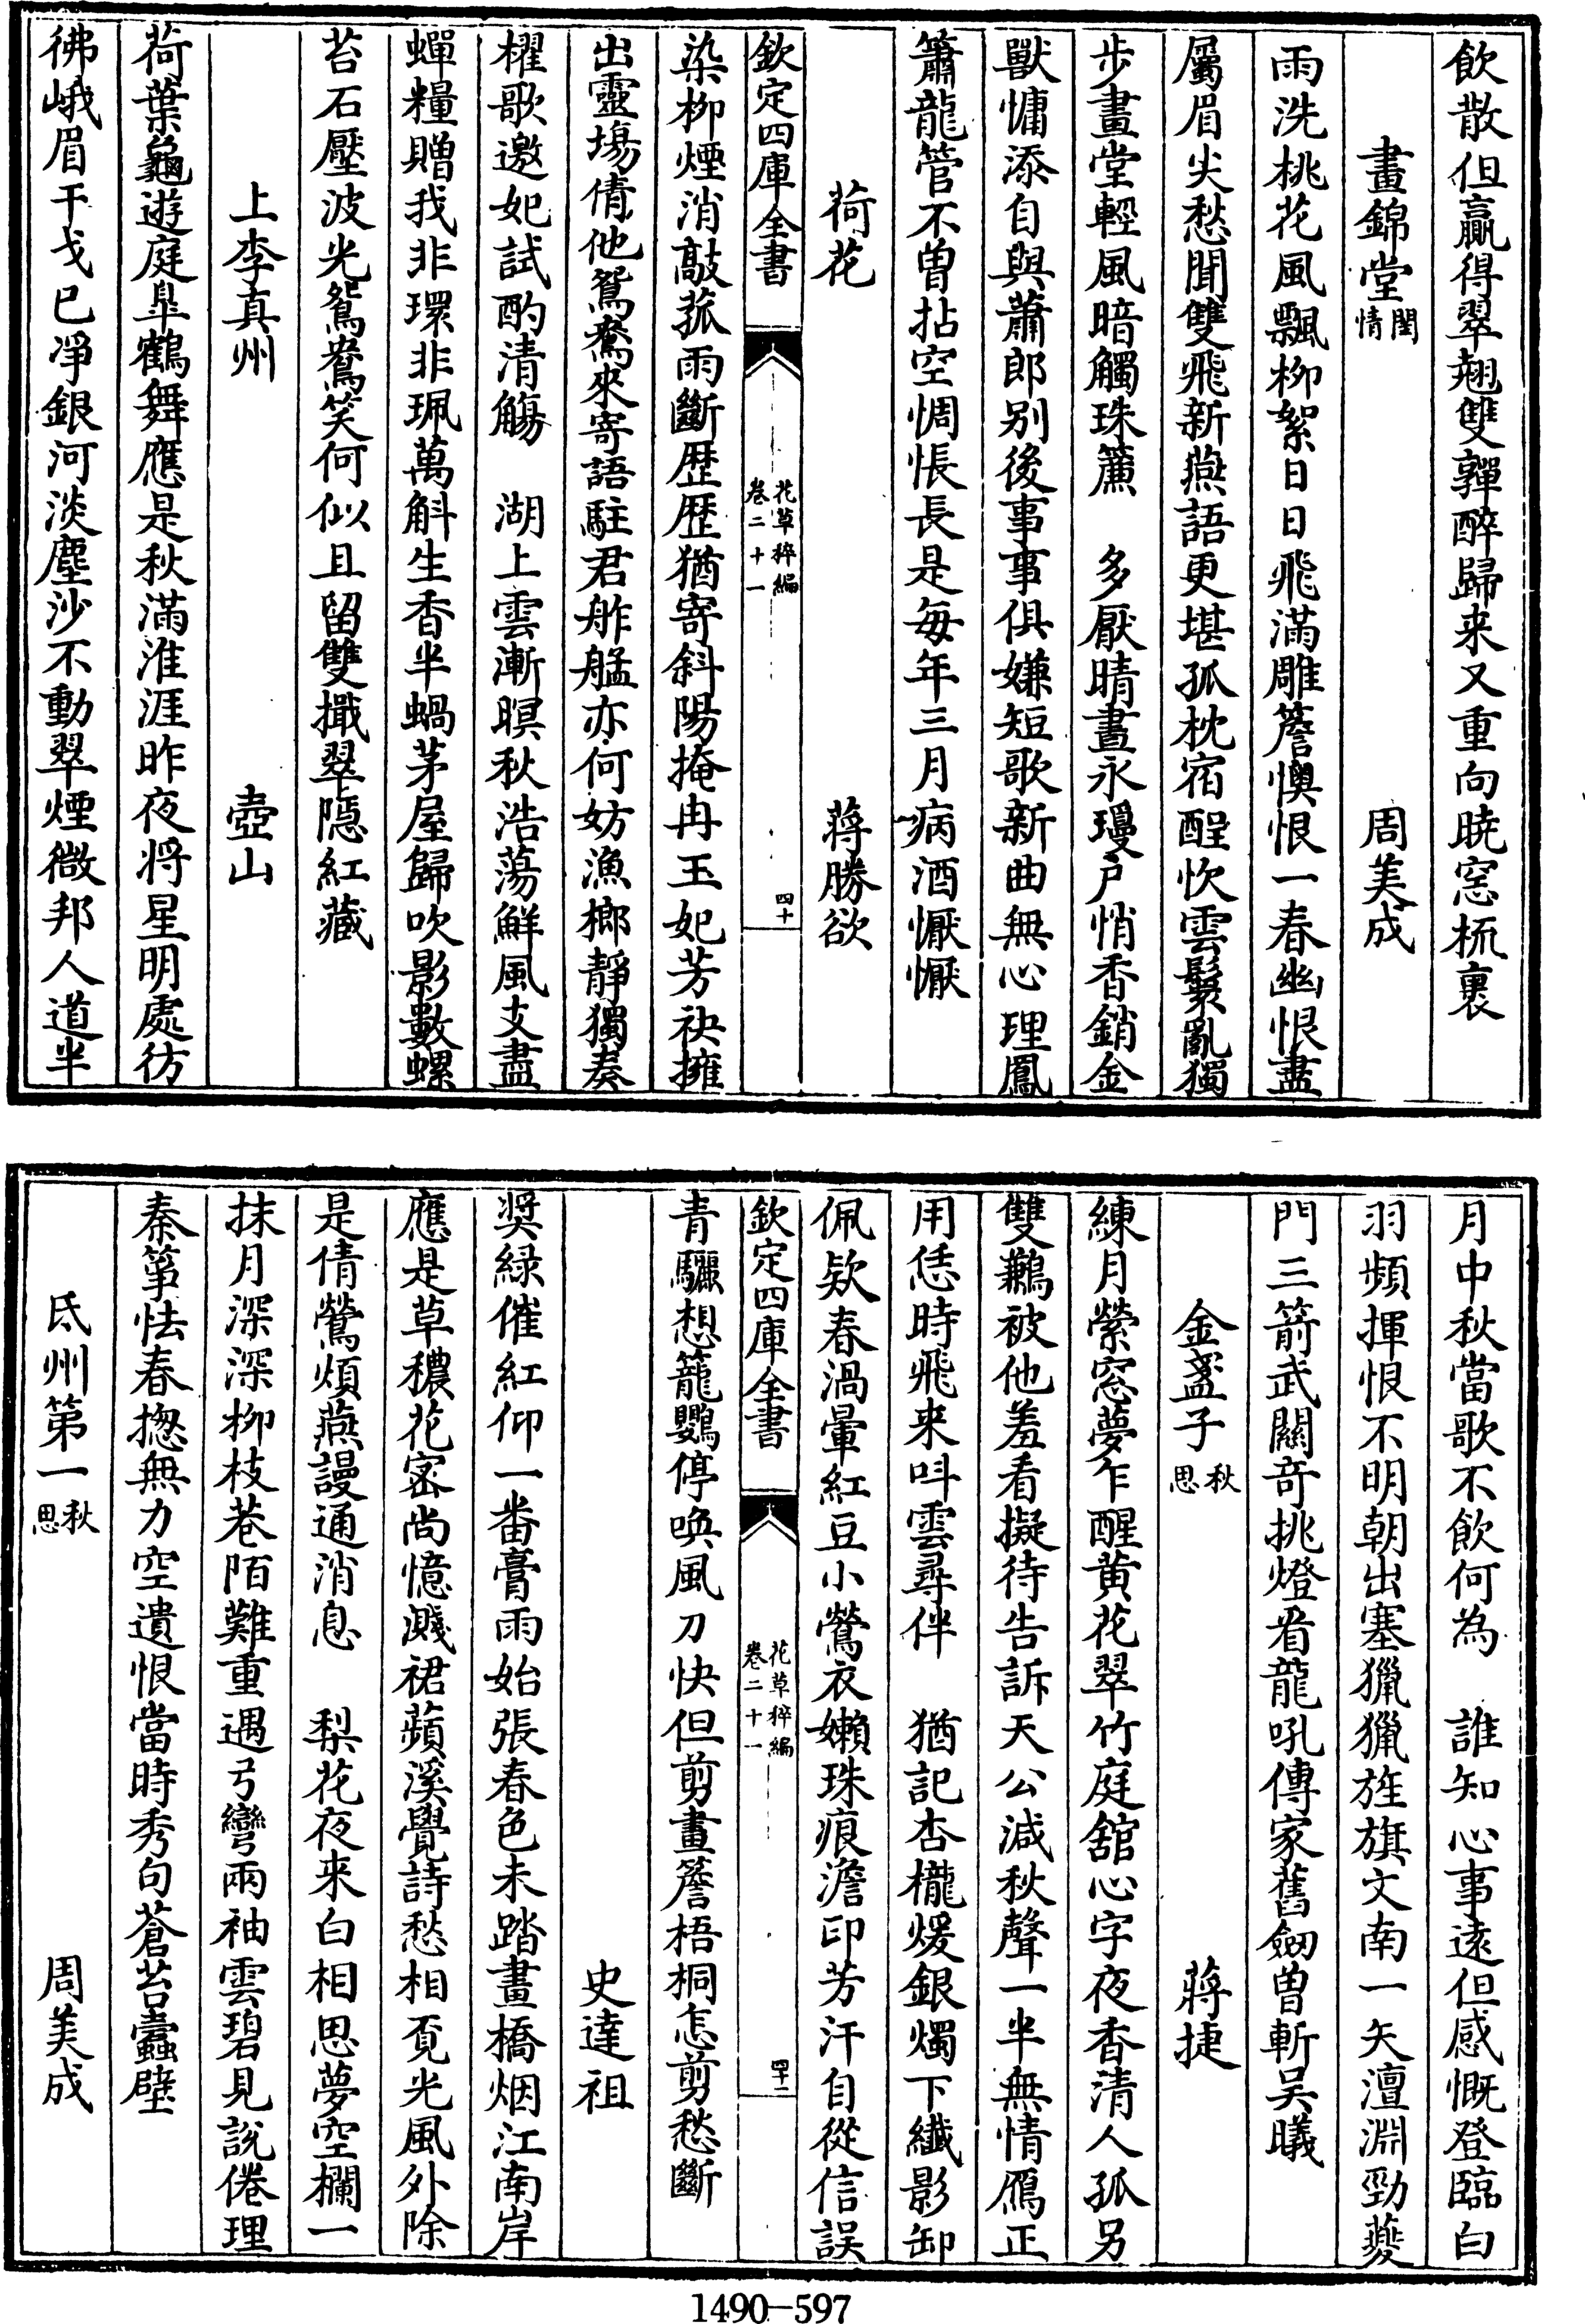 飲散但贏得翠翹雙嚲醉歸来又重向暁窓梳裹
畫錦堂閨情　周美成
雨洗桃花風飄柳絮日日飛滿雕簷懊恨一春幽恨盡
屬眉尖愁聞雙飛新燕語更堪孤枕宿酲忺雲鬟亂獨
步畫堂輕風暗觸珠簾　多厭晴晝永瓊户悄香銷金
獸慵添自與蕭郎别後事事俱嫌短歌新曲無心理鳳
簫龍管不曽拈空惆悵長是毎年三月病酒懨懨
荷花　蔣勝欲
欽定四庫全書　花草稡編卷二十一　四十
染栁煙消敲菰雨斷歴歴猶寄斜陽掩冉玉妃芳袂擁
出靈塲倩他鴛鴦來寄語駐君舴艋亦何妨漁榔靜獨奏
櫂歌邀妃試酌清觴　湖上雲漸暝秋浩蕩鮮風支盡
蟬糧贈我非環非珮萬斛生香半蝸茅屋歸吹影數螺
苔石壓波光鴛鴦笑何似且留雙檝翠隱紅藏
上李真州　壺山
荷葉龜遊庭臯鶴舞應是秋滿淮涯昨夜将星明處彷
彿峨眉干戈已凈銀河淡塵沙不動翠煙微邦人道半
月中秋當歌不飲何為　誰知心事遠但感慨登臨白
羽頻揮恨不明朝出塞獵獵旌旗文南一矢澶淵勁夔
門三箭武關竒挑燈看龍吼傳家舊劒曽斬吳曦
金盞子秋思　蔣捷
練月縈窓夢乍醒黄花翠竹庭舘心字夜香清人孤另
雙鶼被他羞看擬待告訴天公減秋聲一半無情鴈正
用恁時飛来呌雲尋伴　猶記杏櫳煖銀燭下纖影卸
佩欵春渦暈紅豆小鶯衣嬾珠痕澹印芳汗自從信誤
欽定四庫全書　花草稡編卷二十一　四十一
青驪想籠鸚停喚風刀快但剪畫簷梧桐怎剪愁斷
史達祖
奨緑催紅仰一畨膏雨始張春色未踏畫橋烟江南岸
應是草穠花宻尚憶濺裙蘋溪覺詩愁相覔光風外除
是倩鶯煩燕謾通消息　梨花夜来白相思夢空欄一
抹月深深栁枝巷陌難重遇弓彎兩袖雲碧見説倦理
秦筝怯春摠無力空遺恨當時秀句蒼苔蠹壁
氐州第一秋思　周美成
1490-597